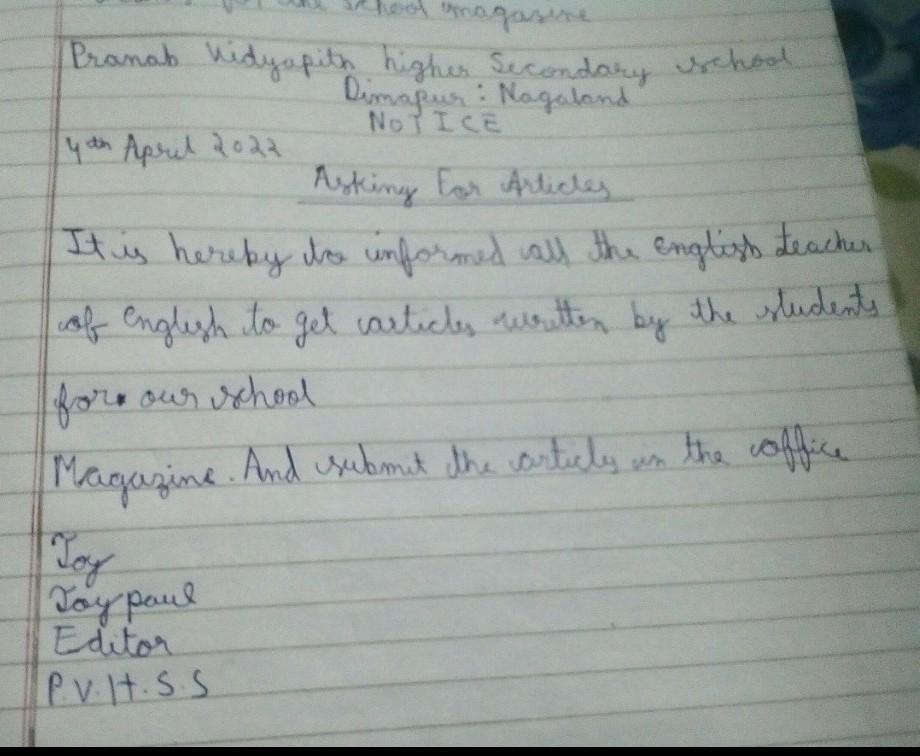 the school magazine
Pranab Vidyapith higher Secondary school
Dimapur : Nagaland
NOTICE
4th April 2022
Asking For Articles
It is hereby to informed all the english teacher
of English to get articles written by the students
for our school
Magazine. And submit the articles in the office
Joy
Joy paul
Editor
P.V.H.S.S